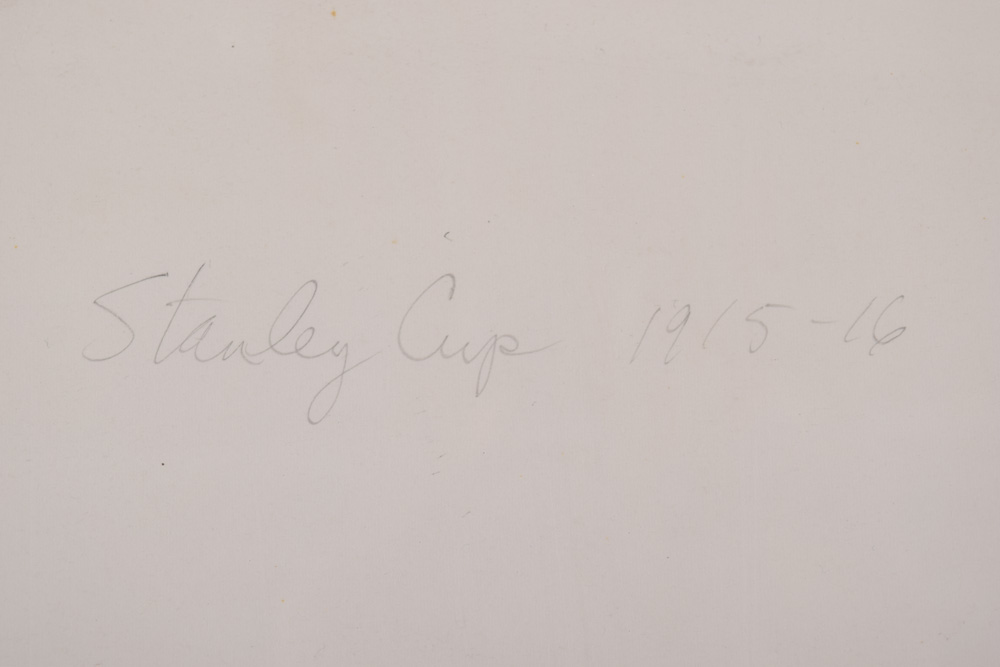 Stanley Cup 1915-16